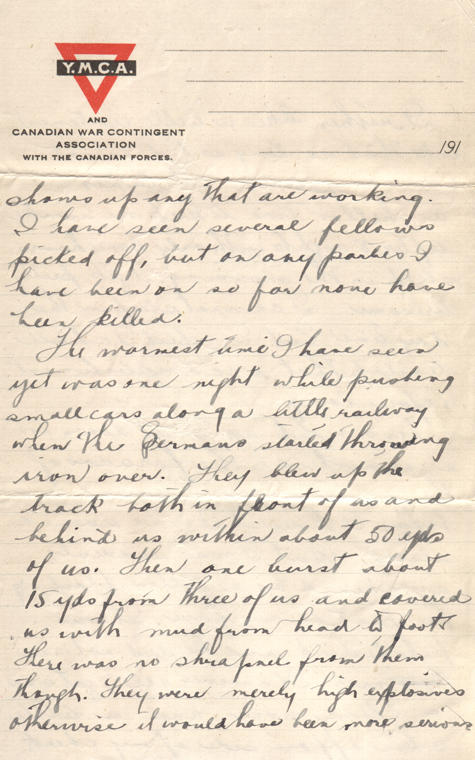 Y.M.C.A.
AND
CANADIAN WAR CONTINGENT
ASSOCIATION
WITH THE CANADIAN FORCES.
191
shows up any that are working.
I have seen several fellows
picked off, but on any parties I
have been on so far none have
been killed.
The warmest time I have seen
yet was one night while pushing
small cars along a little railway
when the Germans started throwing
iron over. They blew up the
track both in front of us and
behind us within about 50 yds
of us. Then one burst about
15 yds from three of us and covered
us with mud from head to foot.
There was no shrapnel from them
though. They were merely high explosives
otherwise it would have been more serious